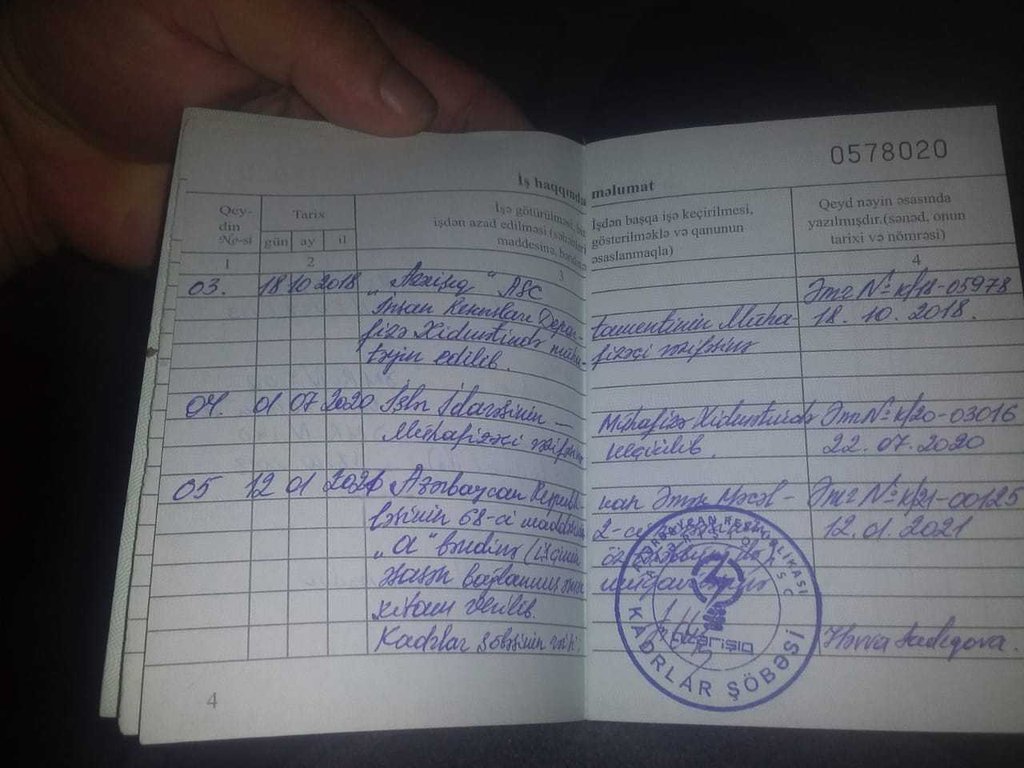 0578020
İş haqqında məlumat
Qey-
din
№-si
Tarix
gün ay il
İşə götürülməsi,
işdən azad edilməsi
maddəsinə,
İşdən başqa işə keçirilməsi,
gösterilməklə və qanunun
əsaslanmaqla)
Qeyd nəyin əsasında
yazılmışdır.(sənəd, onun
tarixi və nömrəsi)
1 2 3 4
03. 18 10 2018 "Azərişıq" ASC Əmr № k/18-05978
İnsan Resursları Depar- tamentinin Müha- 18.10.2018.
fizə Xidmətinə müha- fizəçi vəzifəsinə
təyin edilib.
04. 01 07 2020 İşlər İdarəsinin Mühafizə Xidmətində Əmr № k/20-03016
Mühafizəçi vəzifəsinə keçirilib. 22.07.2020
05 12 01 2021 Azərbaycan Respubli- kası Əmək Məcəl- Əmr № k/21-00125
ləsinin 68-ci maddəsinin 2-ci 12.01.2021
"a" bəndinə (işçinin
əsasən bağlanmış
xitam verilib.
Kadrlar şöbəsinin Həvva Sadıqova.
AZƏRBAYCAN RESPUBLİKASI
azərişıq
KADRLAR ŞÖBƏSİ
4